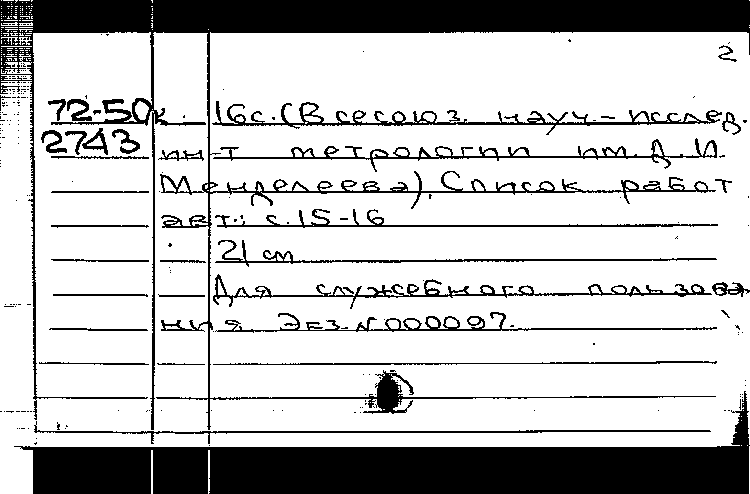 2
72-50к 16с. (Всесоюз. науч.-исслед.
2743 ин-т метрологии им. Д. И.
Менделеева). Список работ
авт.: с. 15-16
21 см
Для служебного пользова
ния Экз. N 000097.